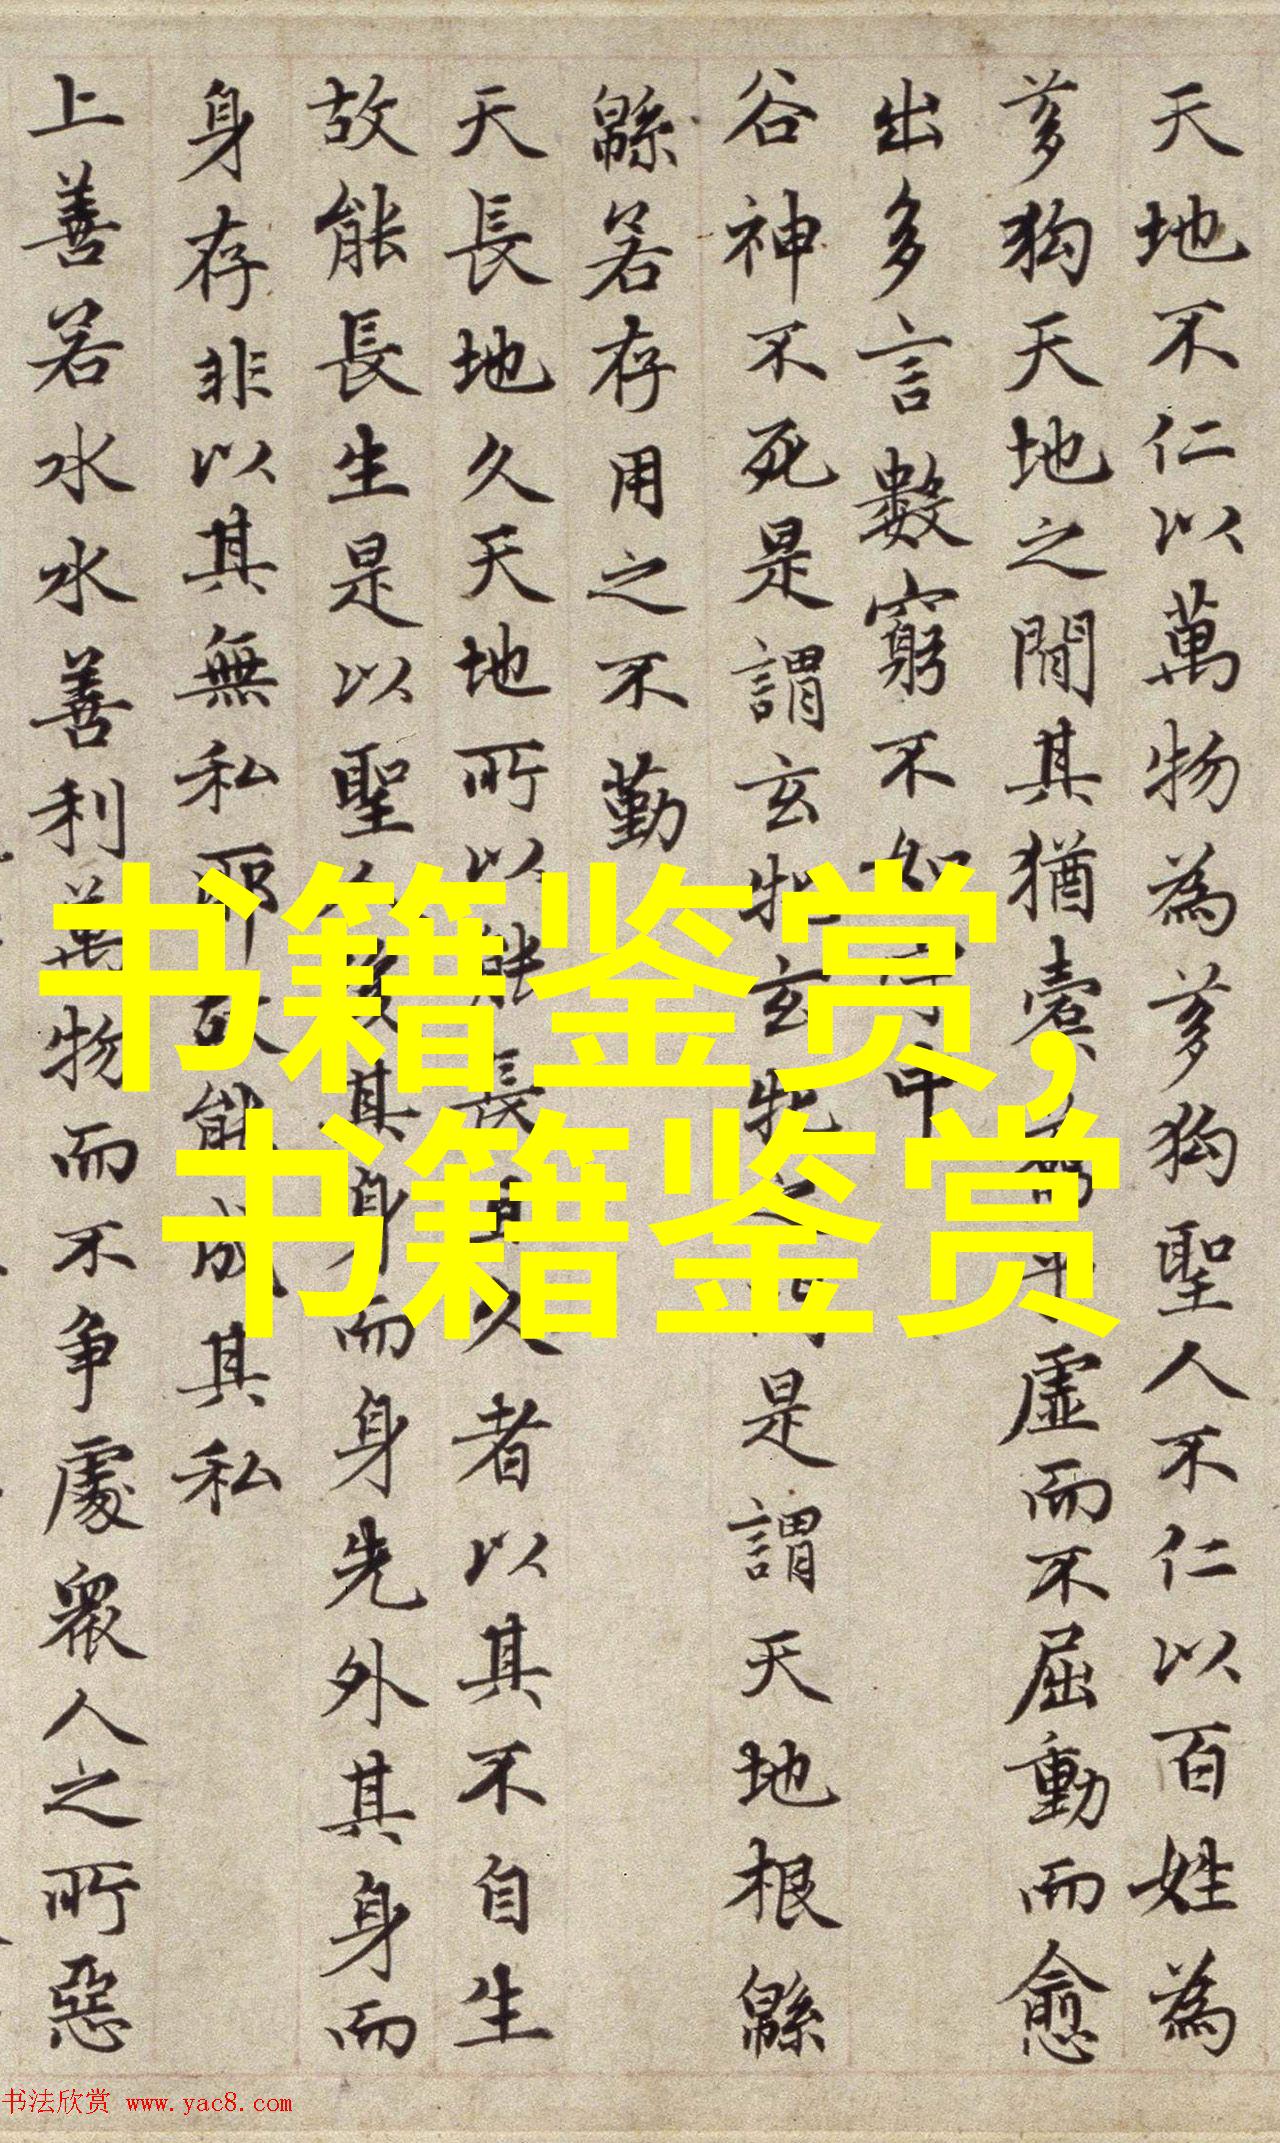 天地不仁以萬物為芻狗聖人不仁以百姓為
芻狗天地之間其猶橐乎虛而不屈動而愈
出多言數窮不如守中
谷神不死是謂玄牝玄牝之門是謂天地根緜
緜若存用之不勤
天長地久天地所以能長且久者以其不自生
故能長生是以聖人後其身而身先外其身而
身存非以其無私耶故能成其私
上善若水水善利萬物而不争處衆人之所惡
书籍鉴赏,
书籍鉴赏
书法欣赏 www.yac8.com